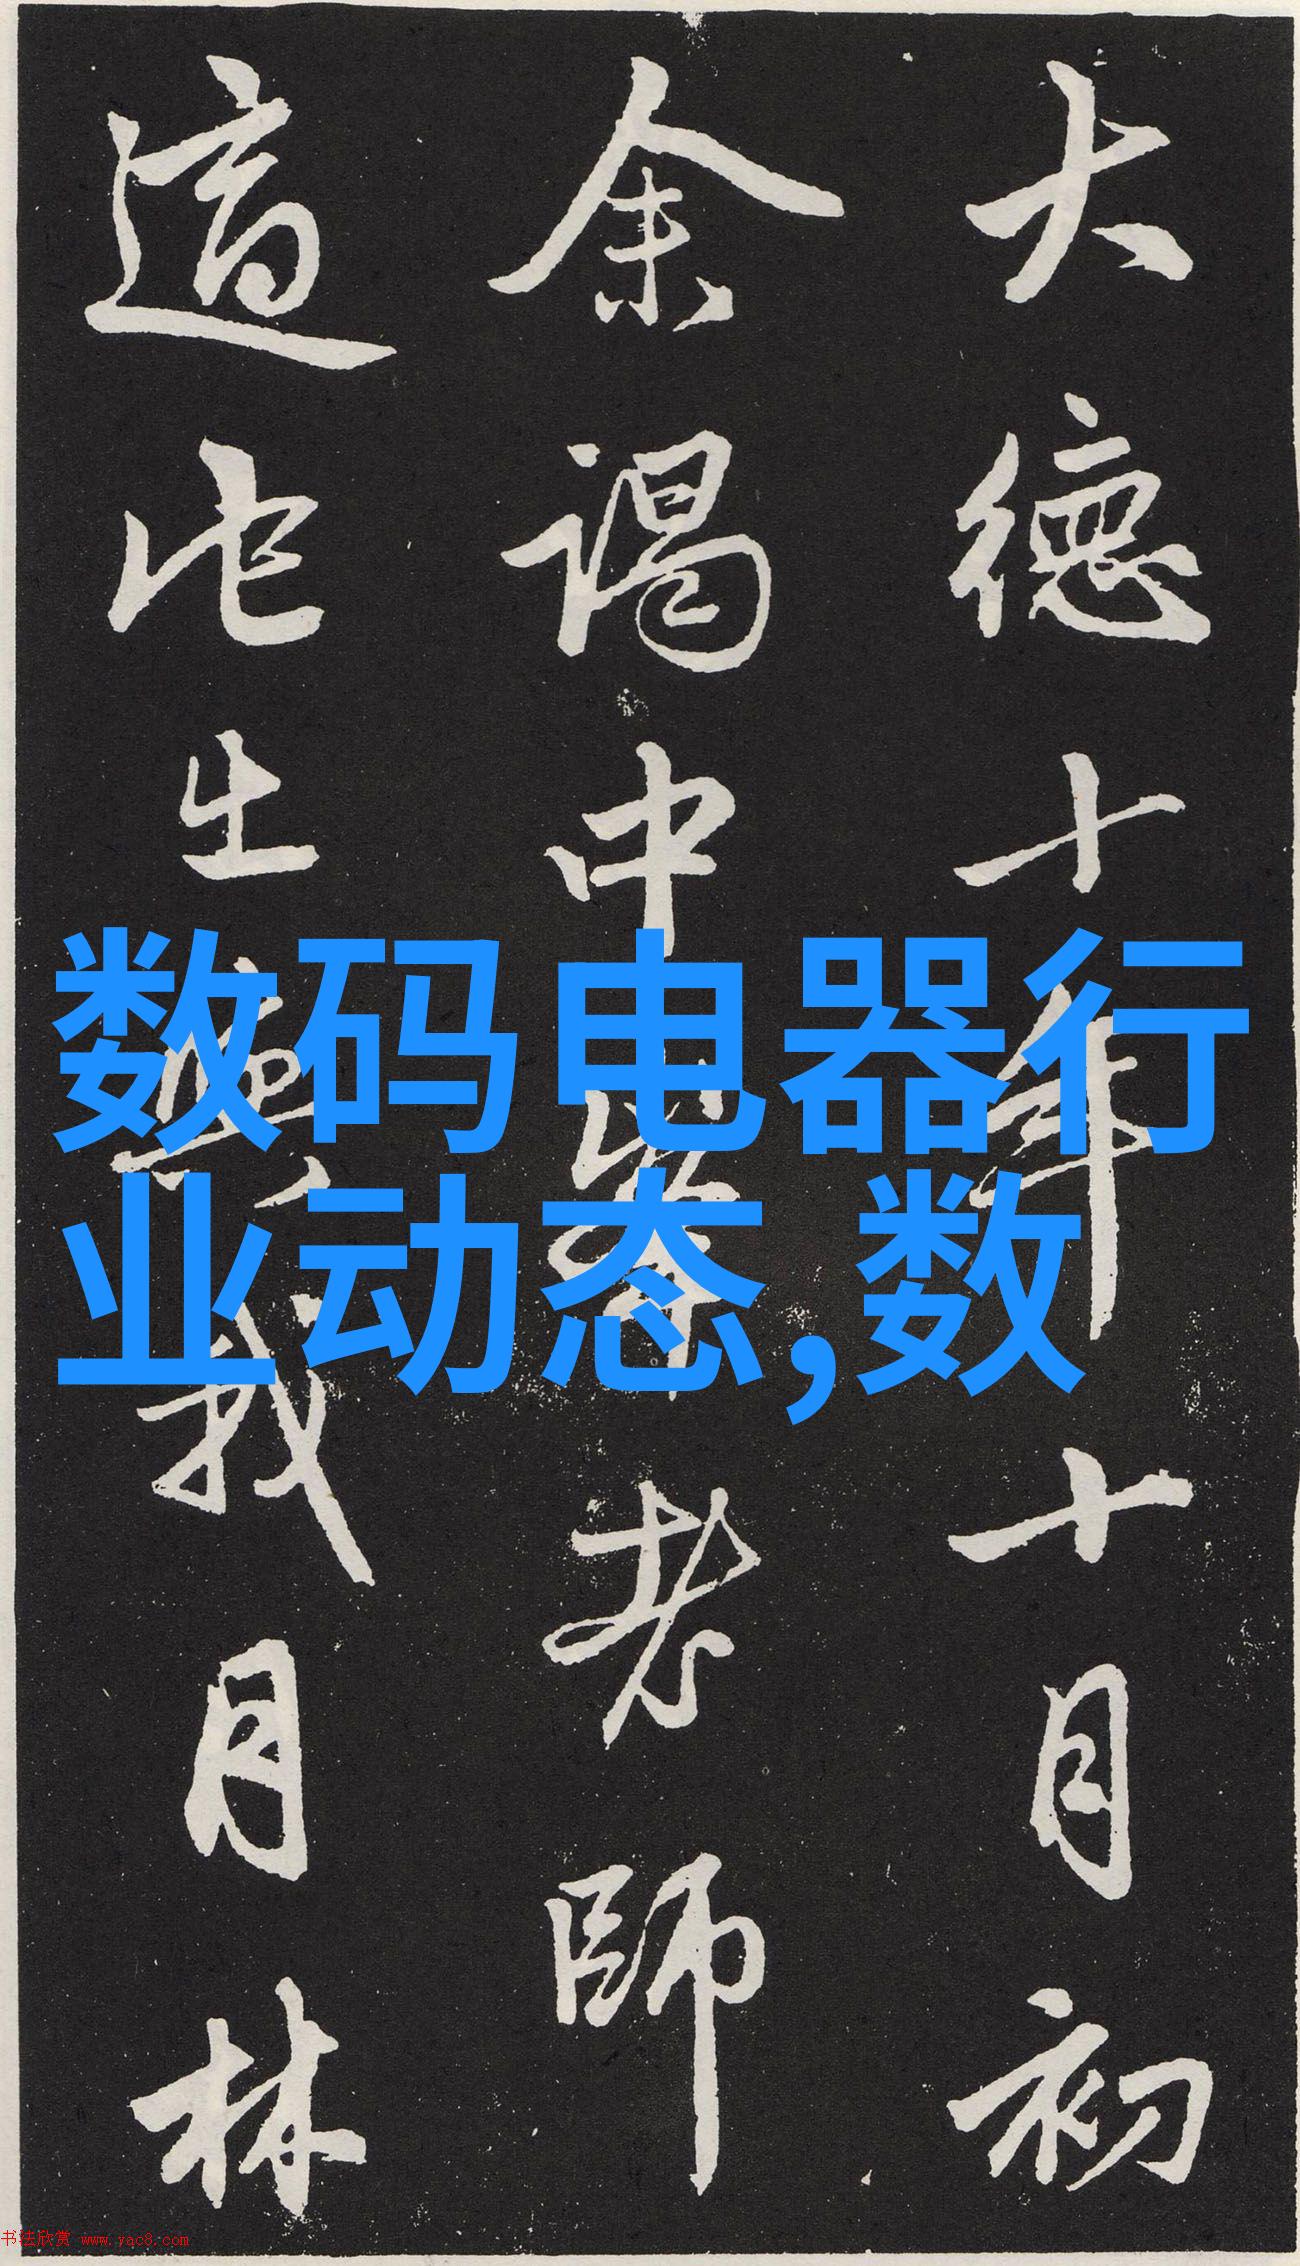 大德十年十月初
余謁中峯老師
適此生與我月林
数码电器行
业动态,数
书法欣赏 www.yac8.com